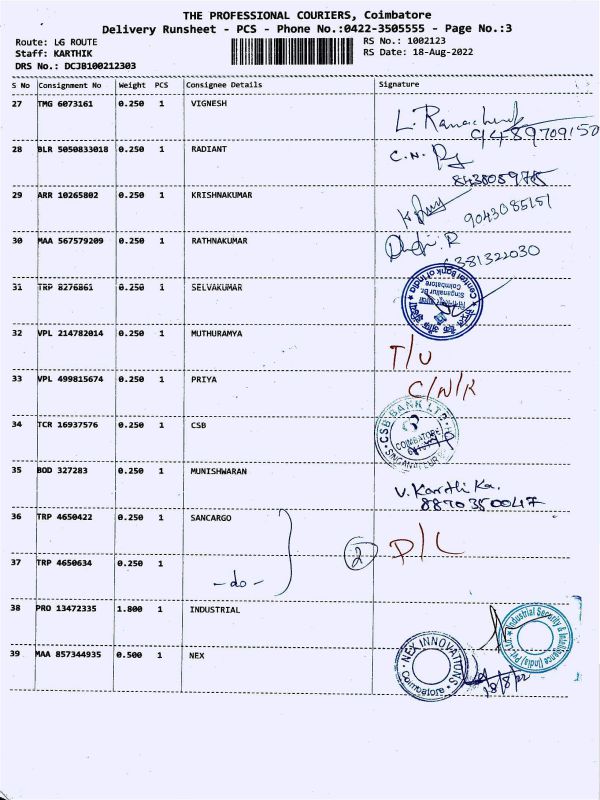 THE PROFESSIONAL COURIERS, Coimbatore
Delivery Runsheet - PCS - Phone No.:0422-3505555 - Page No.:3
Route: LG ROUTE RS No.: 1002123
Staff: KARTHIK RS Date: 18-Aug-2022
DRS No.: DCJB100212303
S No Consignment No Weight PCS Consignee Details Signature
27 TMG 6073161 0.250 1 VIGNESH
9489709150
28 BLR 5050833018 0.250 1 RADIANT C.N.
29 ARR 10265802 0.250 1 KRISHNAKUMAR
9043085151
30 MAA 567579209 0.250 1 RATHNAKUMAR
6381322030
31 TRP 8276861 0.250 1 SELVAKUMAR
Central Bank of India
Singanallur Br.
Coimbatore
32 VPL 214782014 0.250 1 MUTHURAMYA
T/U
33 VPL 499815674 0.250 1 PRIYA C/N/R
34 TCR 16937576 0.250 1 CSB
CSB BANK LTD
COIMBATORE
35 BOD 327283 0.250 1 MUNISHWARAN
V. Karthika.
8870350047
36 TRP 4650422 0.250 1 SANCARGO
2 D/L
37 TRP 4650634 0.250 1
-do-
38 PRO 13472335 1.800 1 INDUSTRIAL
Industrial Security & Intelligence (India) Pvt. Ltd
39 MAA 857344935 0.500 1 NEX
NEX INNOVATIONS
Coimbatore
18/8/22